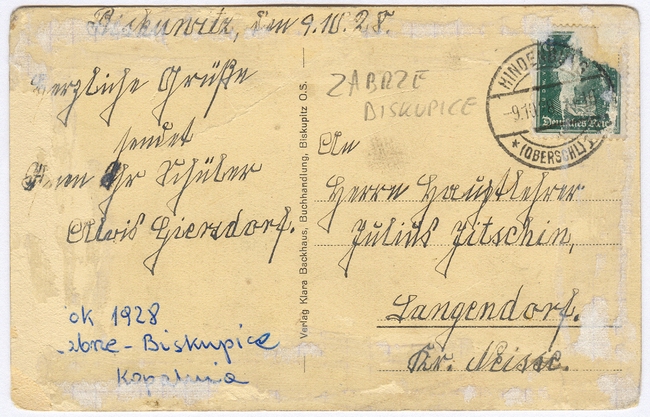 Biskupitz, den 9.10.28.
Herzliche Grüße
sendet
Ihnen Ihr Schüler
Alois Giersdorf.
ok 1928
abrze - Biskupice
Kopalnia
Verlag Klara Backhaus, Buchhandlung, Biskupitz O.S.
ZABRZE
BISKUPICE
HINDENBURG
-9.10
*(OBERSCHL)*
Deutsches Reich
An
Herrn Hauptlehrer
Julius Jitschin,
Langendorf.
Kr. Neisse.